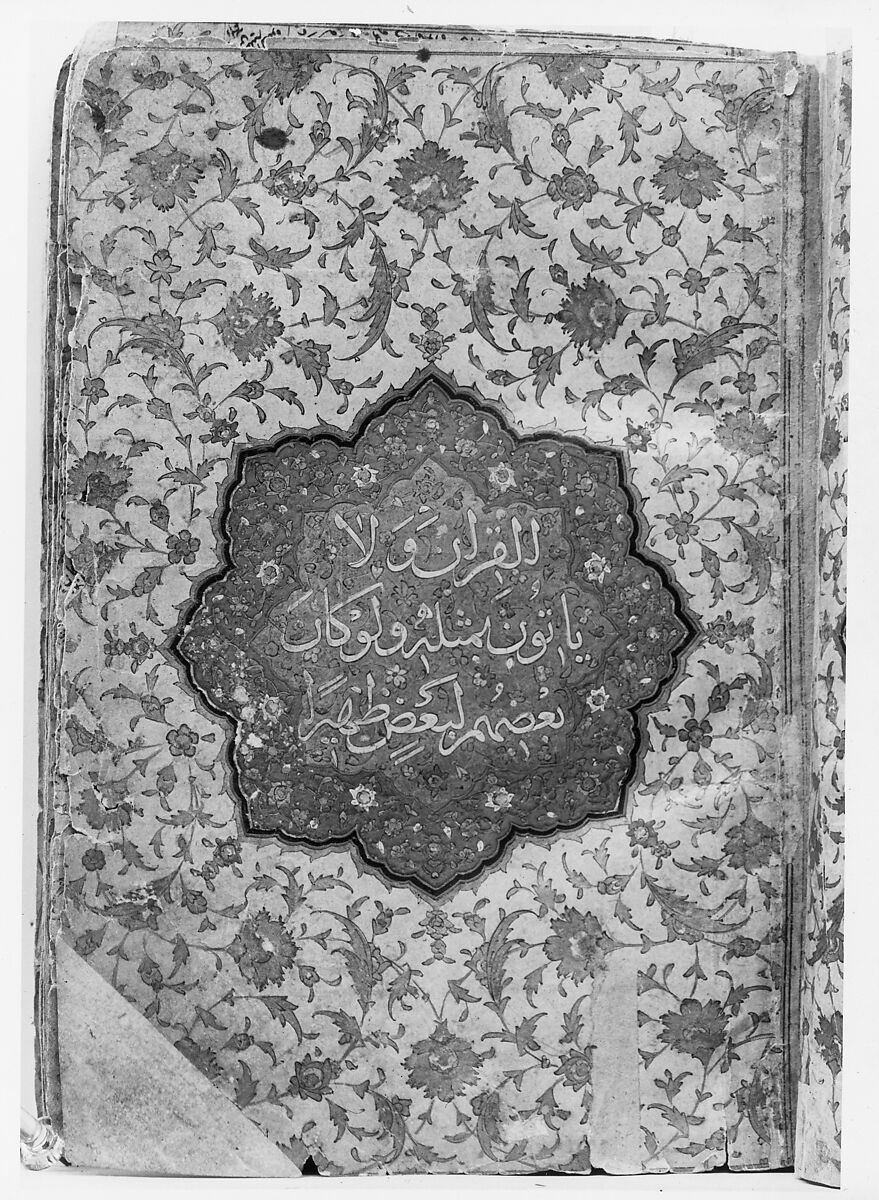 القران وَلا
ياتونَ بمثلهُ ولَوكانَ
بعُضهُم لبَعَضٍ ظهيرًا